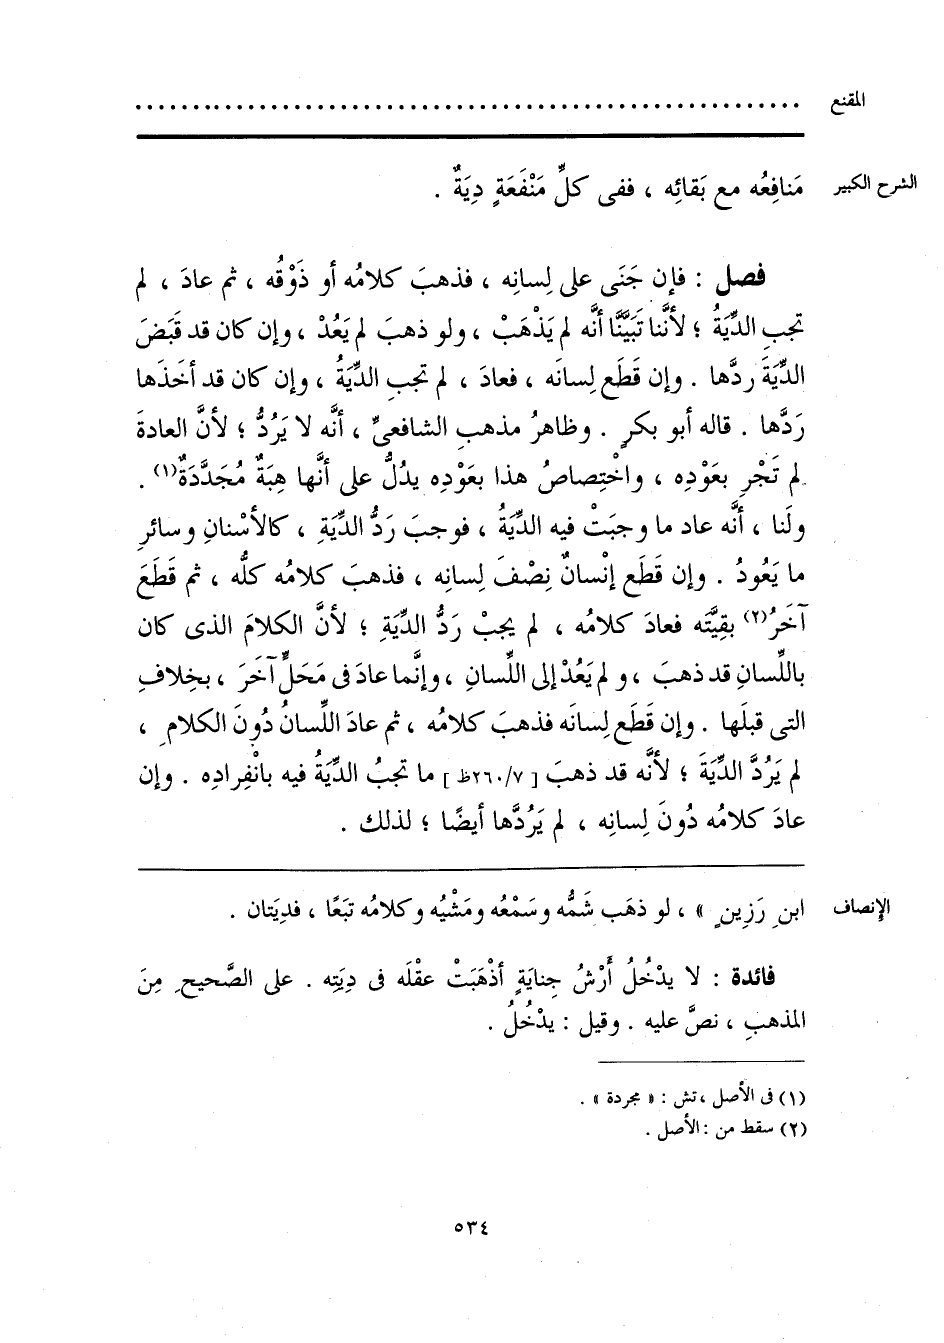 المقنع ............................................................
الشرح الكبير مَنافِعُه مع بَقائِه ، ففى كلِّ مَنْفَعَةٍ دِيَةٌ .
فصل : فإن جَنَى على لِسانِه ، فذهبَ كلامُه أو ذَوْقُه ، ثم عادَ ، لم
تجبِ الدِّيَةُ ؛ لأنَّنا تَبَيَّنَّا أنَّه لم يَذْهَبْ ، ولو ذهبَ لم يَعُدْ ، وإن كان قد قَبَضَ
الدِّيَةَ ردَّها . وإن قَطَع لِسانَه ، فعادَ ، لم تجبِ الدِّيَةُ ، وإن كان قد أخَذَها
رَدَّها . قاله أبو بكرٍ . وظاهرُ مذهبِ الشافعىِّ ، أنَّه لا يَرُدُّ ؛ لأنَّ العادةَ
لم تَجْرِ بعَوْدِه ، واخْتِصاصُ هذا بعَوْدِه يدُلُّ على أنَّها هِبَةٌ مُجَدَّدَةٌ(١) .
ولَنا ، أنَّه عاد ما وجبَتْ فيه الدِّيَةُ ، فوجبَ رَدُّ الدِّيَةِ ، كالأسْنانِ وسائرِ
ما يَعُودُ . وإن قَطَع إنْسانٌ نِصْفَ لِسانِه ، فذهبَ كلامُه كلُّه ، ثم قَطَعَ
آخَرُ(٢) بقِيَّتَه فعادَ كلامُه ، لم يجبْ رَدُّ الدِّيَةِ ؛ لأنَّ الكلامَ الذى كان
باللِّسانِ قد ذهبَ ، ولم يَعُدْ إلى اللِّسانِ ، وإنَّما عادَ فى مَحَلٍّ آخَرَ ، بخِلافِ
التى قبلَها . وإن قَطَع لِسانَه فذهبَ كلامُه ، ثم عادَ اللِّسانُ دُونَ الكلامِ ،
لم يَرُدَّ الدِّيَةَ ؛ لأنَّه قد ذهبَ [ ٢٦٠/٧ظ ] ما تجبُ الدِّيَةُ فيه بانْفِرادِه . وإن
عادَ كلامُه دُونَ لِسانِه ، لم يَرُدَّها أيضًا ؛ لذلك .
الإنصاف ابنِ رَزِينٍ » ، لو ذهَب شَمُّه وسَمْعُه ومَشْيُه وكلامُه تبَعًا ، فدِيَتان .
فائدة : لا يدْخُلُ أَرْشُ جِنايَةٍ أذْهَبَتْ عقْلَه فى دِيَتِه . على الصَّحيحِ مِنَ
المذهبِ ، نصَّ عليه . وقيل : يدْخُلُ .
(١) فى الأصل ، تش : « مجردة » .
(٢) سقط من : الأصل .
٥٣٤